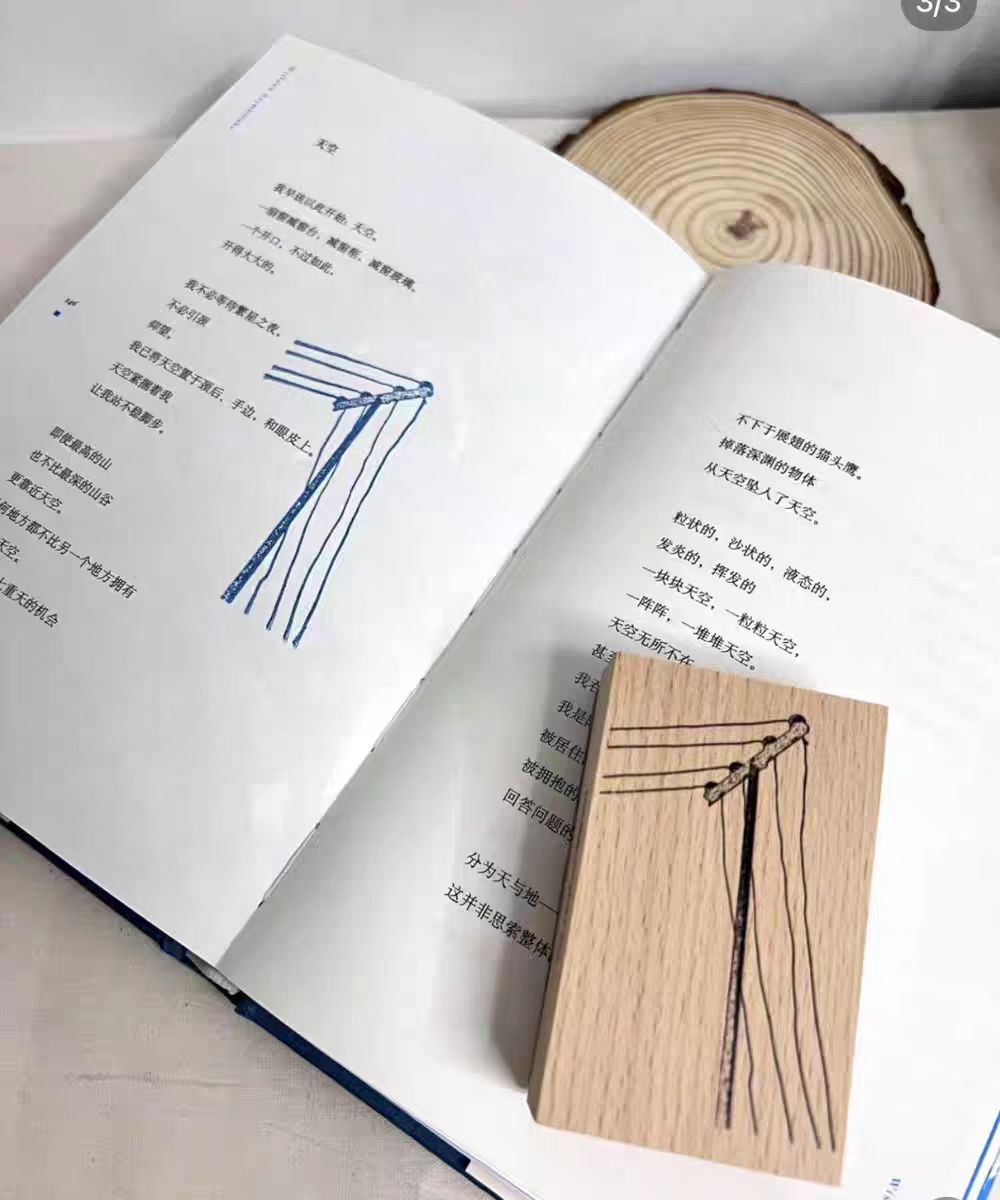 3/3
Wisława Szymborska
天空
我早该以此开始：天空。
一扇窗减窗台，减窗框，减窗玻璃。
一个开口，不过如此，
开得大大的。
我不必等待繁星之夜，
不必引颈
仰望。
我已将天空置于颈后，手边，和眼皮上。
天空紧捆着我
让我站不稳脚步。
即使最高的山
也不比最深的山谷
更靠近天空。
何地方都不比另一个地方拥有
天空。
重天的机会
146
不下于展翅的猫头鹰。
掉落深渊的物体
从天空坠入了天空。
粒状的，沙状的，液态的，
发炎的，挥发的
一块块天空，一粒粒天空，
一阵阵，一堆堆天空。
天空无所不在
甚至
我吞
我是
被居住
被拥抱的
回答问题的
分为天与地——
这并非思索整体